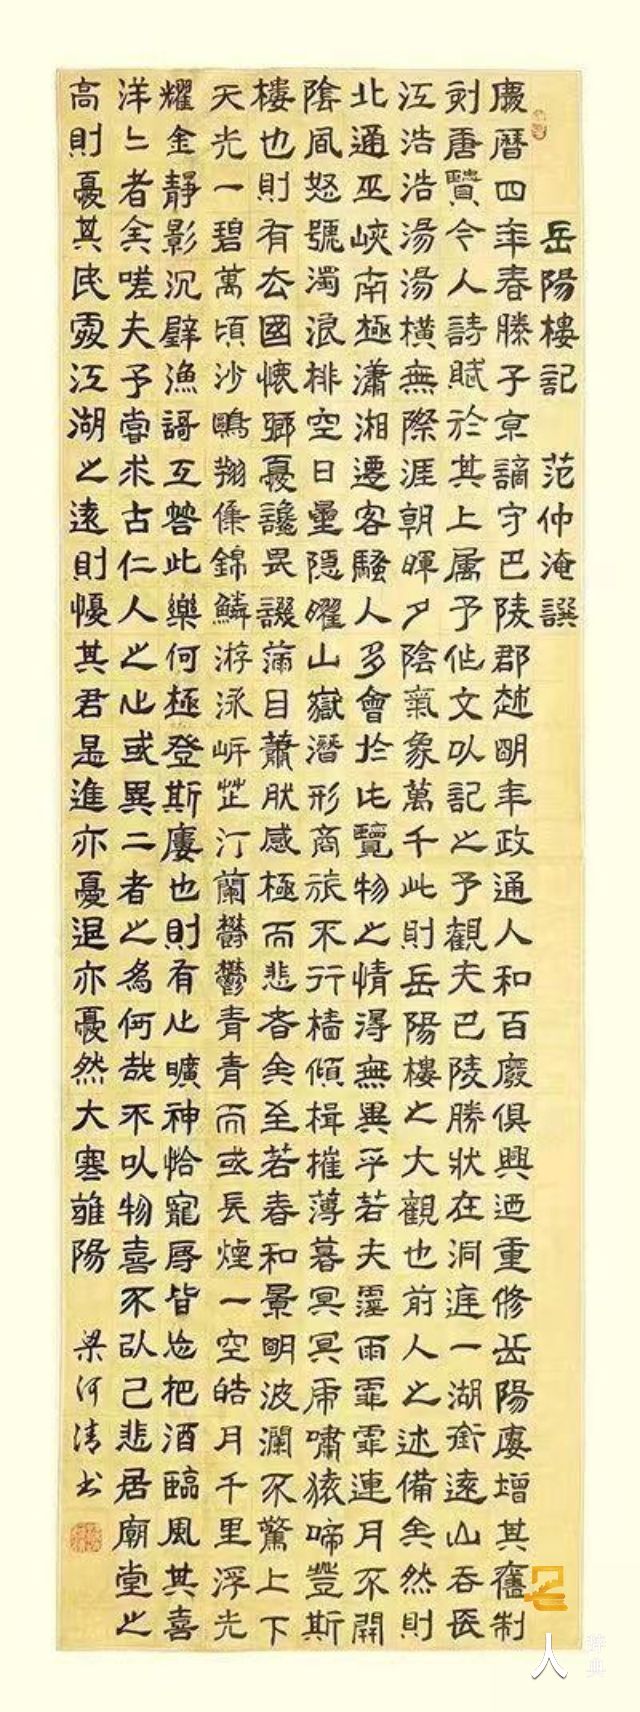 岳陽樓記 范仲淹譔
慶曆四年春滕子京謫守巴陵郡越明年政通人和百廢俱興迺重修岳陽廔增其舊制
刻唐賢今人詩賦於其上属予作文以記之予觀夫巴陵勝狀在洞庭一湖銜遠山吞長
江浩浩湯湯橫無際涯朝暉夕陰氣象萬千此則岳陽樓之大觀也前人之述備矣然則
北通巫峽南極瀟湘遷客騷人多會於此覽物之情得無異乎若夫霪雨霏霏連月不開
陰風怒號濁浪排空日星隱曜山嶽潛形商旅不行檣傾楫摧薄暮冥冥虎嘯猿啼登斯
樓也則有去國懷鄉憂讒畏譏滿目蕭然感極而悲者矣至若春和景明波瀾不驚上下
天光一碧萬頃沙鷗翔集錦鱗游泳岸芷汀蘭鬱鬱青青而或長煙一空皓月千里浮光
耀金靜影沉璧漁謌互答此樂何極登斯廔也則有心曠神怡寵辱皆忘把酒臨風其喜
洋洋者矣嗟夫予嘗求古仁人之心或異二者之為何哉不以物喜不以己悲居廟堂之
高則憂其民處江湖之遠則懮其君是進亦憂退亦憂然大寒雒陽 梁河清书
人
辞典